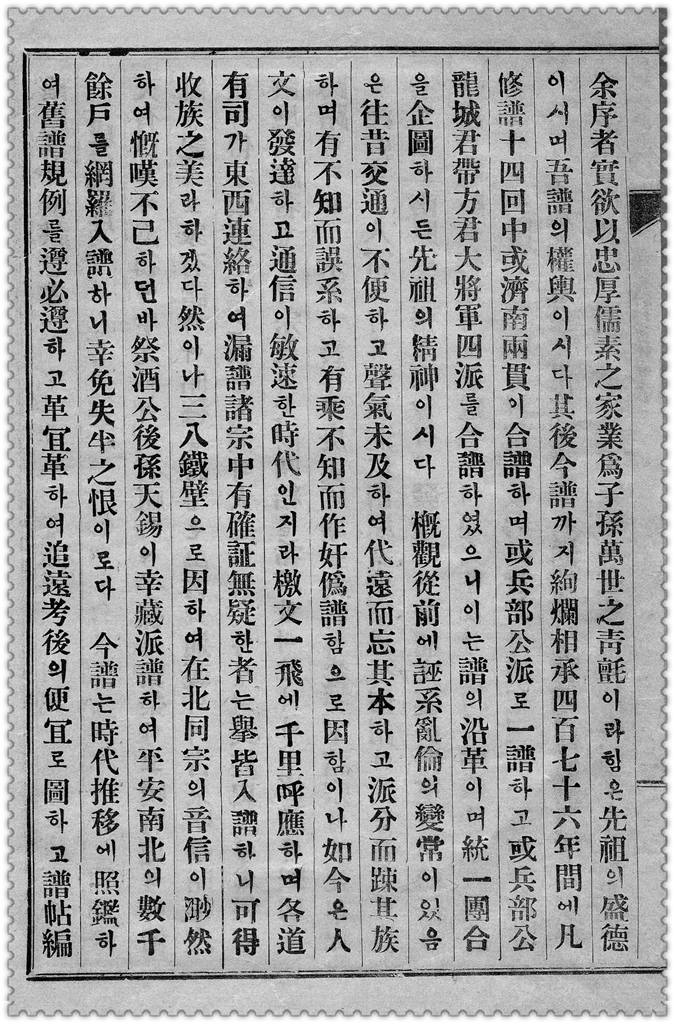 余序者實欲以忠厚儒素之家業爲子孫萬世之靑氈이라함은先祖의盛德
이시며吾譜의權輿이시다其後今譜까지絢爛相承四百七十六年間에凡
修譜十四回中或濟南兩貫이合譜하며或兵部公派로一譜하고或兵部公
龍城君帶方君大將軍四派를合譜하였으니이는譜의沿革이며統一團合
을企圖하시든先祖의精神이시다 槪觀從前에誣系亂倫의變常이있음
은往昔交通이不便하고聲氣未及하여代遠而忘其本하고派分而踈其族
하며有不知而誤系하고有乘不知而作奸僞譜함으로因함이나如今은人
文이發達하고通信이敏速한時代인지라檄文一飛에千里呼應하며各道
有司가東西連絡하여漏譜諸宗中有確証無疑한者는擧皆入譜하니可得
收族之美라하겠다然이나三八鐵壁으로因하여在北同宗의音信이渺然
하여慨嘆不已하던바祭酒公後孫天錫이幸藏派譜하여平安南北의數千
餘戶를網羅入譜하니幸免失半之恨이로다 今譜는時代推移에照鑑하
여舊譜規例를遵必遵하고革冝革하여追遠考後의便冝로圖하고譜帖編